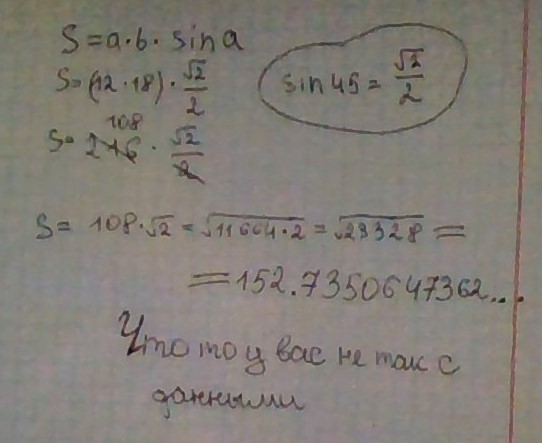 S=a·b·sina
S=(12·18)·√2/2
sin45=√2/2
108
S=216·√2/2
S=108·√2=√11664·2=√23328=
=152.7350647362...
Что то у вас не так с
данными